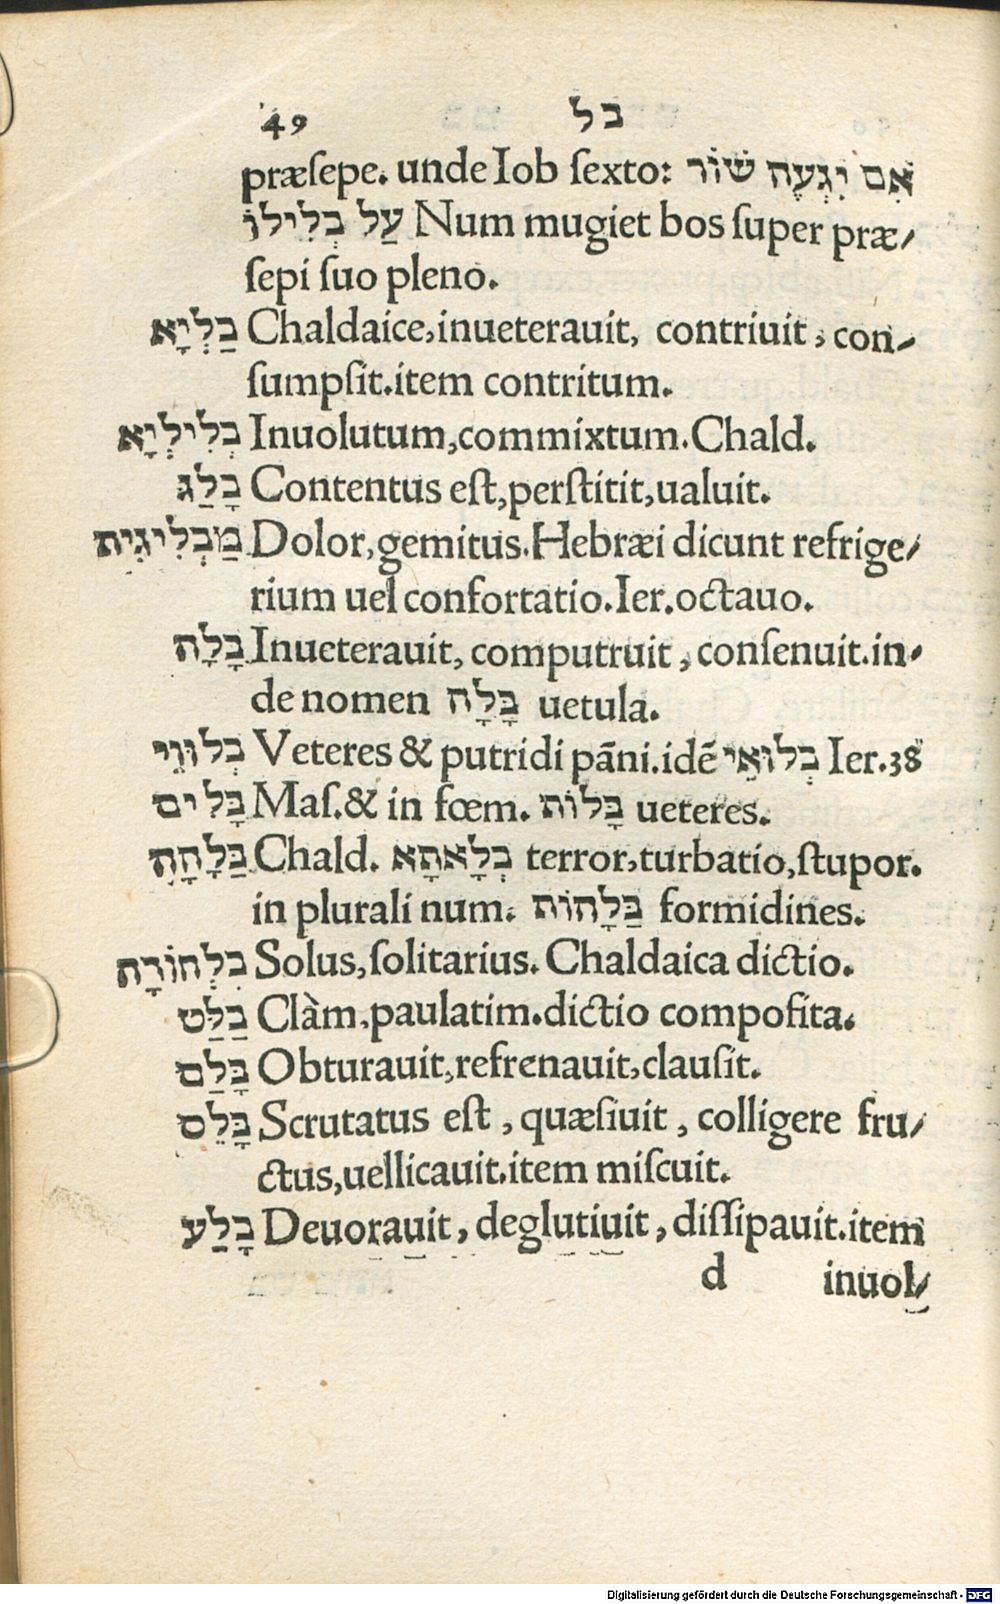 49 בל
præſepe. unde Iob ſexto: אִם יִגְעֶה שׁוֹר
עַל בְּלִילוֹ Num mugiet bos ſuper præ/
ſepi ſuo pleno.
בַּלְיָא Chaldaice, inueterauit, contriuit, con-
ſumpſit. item contritum.
בְּלִילְיָא Inuolutum, commixtum. Chald.
בָּלַג Contentus eſt, perſtitit, ualuit.
מַבְלִיגִית Dolor, gemitus. Hebræi dicunt refrige/
rium uel confortatio. Ier. octauo.
בָּלָה Inueterauit, computruit, conſenuit. in-
de nomen בָּלָה uetula.
בְּלוּוֵי Veteres & putridi pãni. idẽ בְּלוּאֵי Ier. 38
בָּלִים Maſ. & in fœm. בָּלוֹת ueteres.
בַּלָּחָה Chald. בְּלָאתָא terror, turbatio, ſtupor.
in plurali num. בַּלָּהוֹת formidines.
בִּלְחוֹרָה Solus, ſolitarius. Chaldaica dictio.
בַּלַּט Clàm, paulatim. dictio compoſita.
בָּלַם Obturauit, refrenauit, clauſit.
בָּלַס Scrutatus eſt, quæſiuit, colligere fru/
ctus, uellicauit. item miſcuit.
בָּלַע Deuorauit, deglutiuit, diſſipauit. item
d inuol/
Digitalisierung gefördert durch die Deutsche Forschungsgemeinschaft - DFG